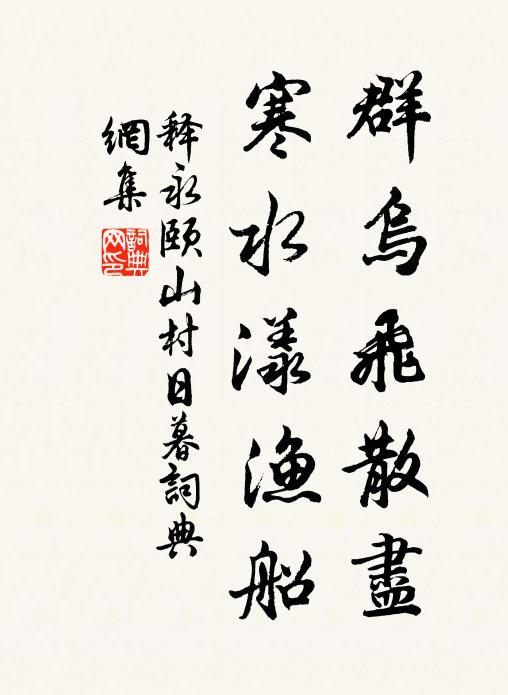 群烏飛散盡
寒水漾漁船
释永頤山村日暮詞典
網集
詞典
网印